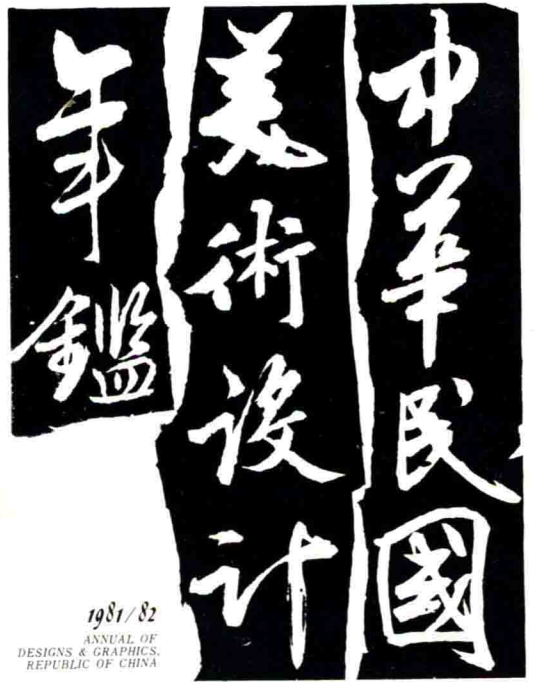 中華民國
美術設計
年鑑
1981/82
ANNUAL OF
DESIGNS & GRAPHICS,
REPUBLIC OF CHINA